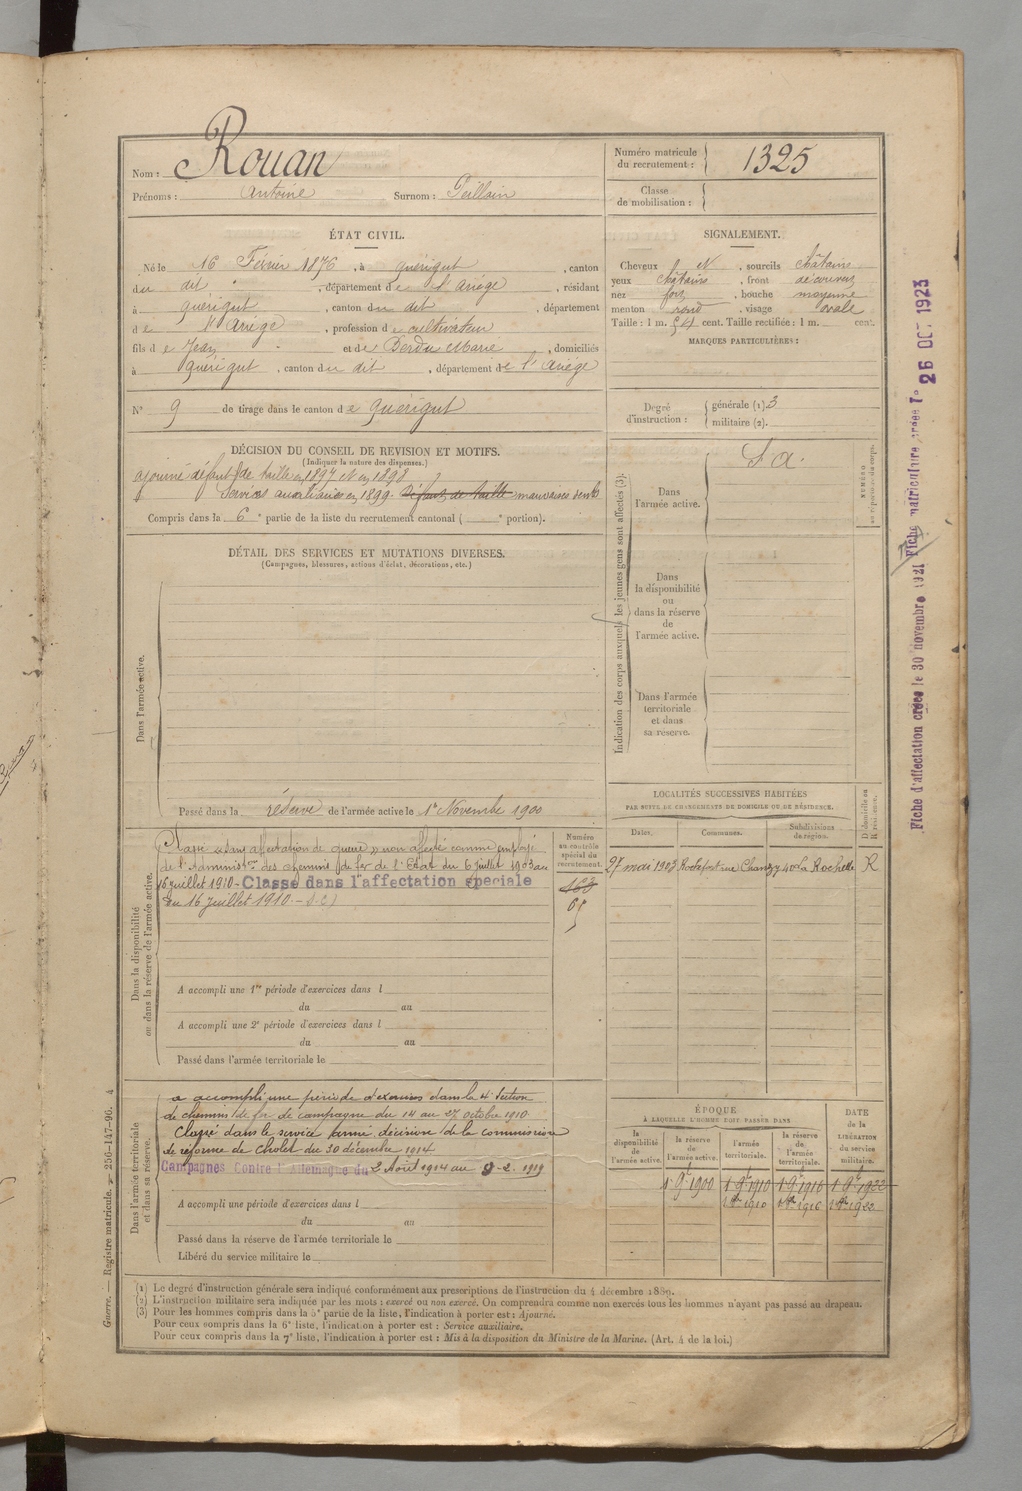 Nom : Rouan
Prénoms : Antoine Surnom : Teillain
ÉTAT CIVIL.
Né le 16 Février 1876, à Quérigut, canton
du dit, département de l'Ariège, résidant
à Quérigut, canton du dit, département
de l'Ariège, profession de cultivateur
fils de Jean et de Berdu Marie, domiciliés
à Quérigut, canton du dit, département de l'Ariège
N° 9 de tirage dans le canton de Quérigut
DÉCISION DU CONSEIL DE REVISION ET MOTIFS.
(Indiquer la nature des dispenses.)
ajourné défaut de taille en 1897 et en 1898
Services auxiliaires en 1899. Défaut de taille mauvaises dents
Compris dans la 6e partie de la liste du recrutement cantonal ( e portion).
DÉTAIL DES SERVICES ET MUTATIONS DIVERSES.
(Campagnes, blessures, actions d'éclat, décorations, etc.)
Dans l'armée active.
Passé dans la réserve de l'armée active le 1er Novembre 1900
Dans la disponibilité
ou dans la réserve de l'armée active.
Classé « sans affectation de guerre » non affecté comme employé
de l'Administon des chemins de fer de l'Etat du 6 juillet 1903 au
16 juillet 1910 - Classé dans l'affectation spéciale
du 16 Juillet 1910.
Numéro
au contrôle
spécial du
recrutement.
163
65
A accompli une 1re période d'exercices dans l
du au
A accompli une 2e période d'exercices dans l
du au
Passé dans l'armée territoriale le
Dans l'armée territoriale
et dans sa réserve.
a accompli une période d'exercices dans la 4e Section
de chemins de fer de campagne du 14 au 27 octobre 1910
Classé dans le service armé, décision de la commission
de réforme de Cholet du 30 décembre 1914
Campagnes Contre l'Allemagne du 2 Août 1914 au 9-2-1919
A accompli une période d'exercices dans l
du au
Passé dans la réserve de l'armée territoriale le
Libéré du service militaire le
Numéro matricule
du recrutement : 1325
Classe
de mobilisation :
SIGNALEMENT.
Cheveux et, sourcils châtains
yeux châtains, front découvert
nez fort, bouche moyenne
menton rond, visage ovale
Taille : 1 m. 54 cent. Taille rectifiée : 1 m. cent.
MARQUES PARTICULIÈRES :
Degré
d'instruction :
générale (1) 3
militaire (2).
Indication des corps auxquels les jeunes gens sont affectés (3).
Dans
l'armée active.
S. a.
Dans
la disponibilité
ou
dans la réserve
de
l'armée active.
Dans l'armée
territoriale
et dans
sa réserve.
NUMÉRO
au répertoire du corps.
LOCALITÉS SUCCESSIVES HABITÉES
PAR SUITE DE CHANGEMENTS DE DOMICILE OU DE RÉSIDENCE.
Dates. Communes. Subdivisions
de région.
D domicile ou
R résidence.
27 mai 1903 Rochefort rue Chanzy 40 La Rochelle R
ÉPOQUE
À LAQUELLE L'HOMME DOIT PASSER DANS
la
disponibilité
de
l'armée active.
la réserve
de
l'armée active.
l'armée
territoriale.
la réserve
de
l'armée
territoriale.
DATE
de la
LIBÉRATION
du service
militaire.
1 9bre 1900 1 9bre 1910 1 9bre 1916 1 9bre 1922
1 8bre 1910 1 8bre 1916 1 8bre 1922
(1) Le degré d'instruction générale sera indiqué conformément aux prescriptions de l'instruction du 4 décembre 1889.
(2) L'instruction militaire sera indiquée par les mots : exercé ou non exercé. On comprendra comme non exercés tous les hommes n'ayant pas passé au drapeau.
(3) Pour les hommes compris dans la 5e partie de la liste, l'indication à porter est : Ajourné.
Pour ceux compris dans la 6e liste, l'indication à porter est : Service auxiliaire.
Pour ceux compris dans la 7e liste, l'indication à porter est : Mis à la disposition du Ministre de la Marine. (Art. 4 de la loi.)
Guerre. — Registre matricule. — 256-147-96. 4
Fiche d'affectation créée le 30 novembre 1921 Fiche matriculaire créée le 26 OCT 1923